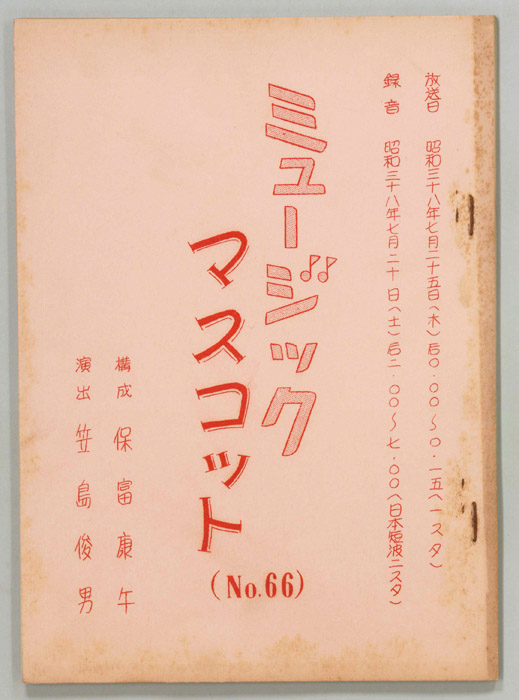 放送日 昭和三十八年七月二十五日(木)后〇・〇〇～〇・一五(一スタ)
録音 昭和三十八年七月二十日(土)后二・〇〇～七・〇〇(日本短波二スタ)
ミュージック
マスコット
(No.66)
構成 保富康午
演出 笠島俊男